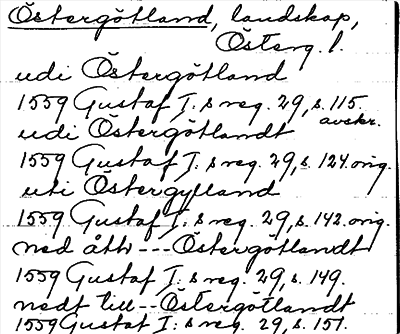 Östergötland, landskap,
Österg. l.
udi Östergötland
1559 Gustaf I: s reg. 29, s. 115.
avskr.
udi Östergötlandt
1559 Gustaf I: s reg. 29, s. 124. orig.
uti Östergylland
1559 Gustaf I: s reg. 29, s. 142. orig.
ned åth --- Östergötlandt
1559 Gustaf I: s reg. 29, s. 149.
nedt till -- Östergötlandt
1559 Gustaf I: s reg. 29, s. 151.